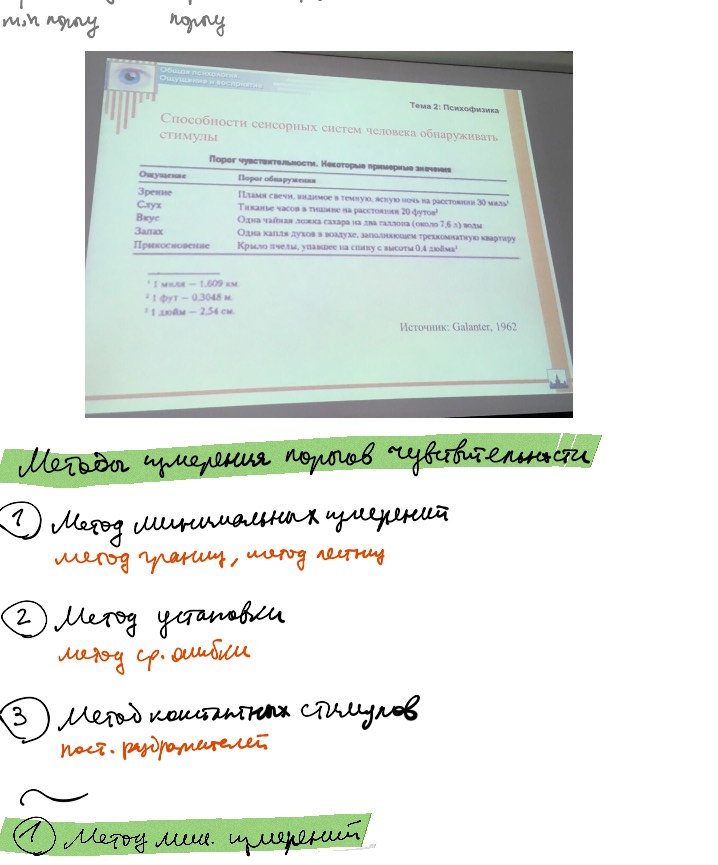 min порогу порогу
Общая психология
Ощущение и восприятие
Тема 2: Психофизика
Способности сенсорных систем человека обнаруживать
стимулы
Порог чувствительности. Некоторые примерные значения
Ощущение Порог обнаружения
Зрение Пламя свечи, видимое в темную, ясную ночь на расстоянии 30 миль¹
Слух Тиканье часов в тишине на расстоянии 20 футов²
Вкус Одна чайная ложка сахара на два галлона (около 7,6 л) воды
Запах Одна капля духов в воздухе, заполняющем трехкомнатную квартиру
Прикосновение Крыло пчелы, упавшее на спину с высоты 0,4 дюйма³
¹ 1 миля — 1,609 км.
² 1 фут — 0,3048 м.
³ 1 дюйм — 2,54 см.
Источник: Galanter, 1962
Методы измерения порогов чувствительности
1 Метод минимальных измерений
метод границ, метод лестниц
2 Метод установки
метод ср. ошибки
3 Метод константных стимулов
пост. раздражителей
1 Метод мин. измерений